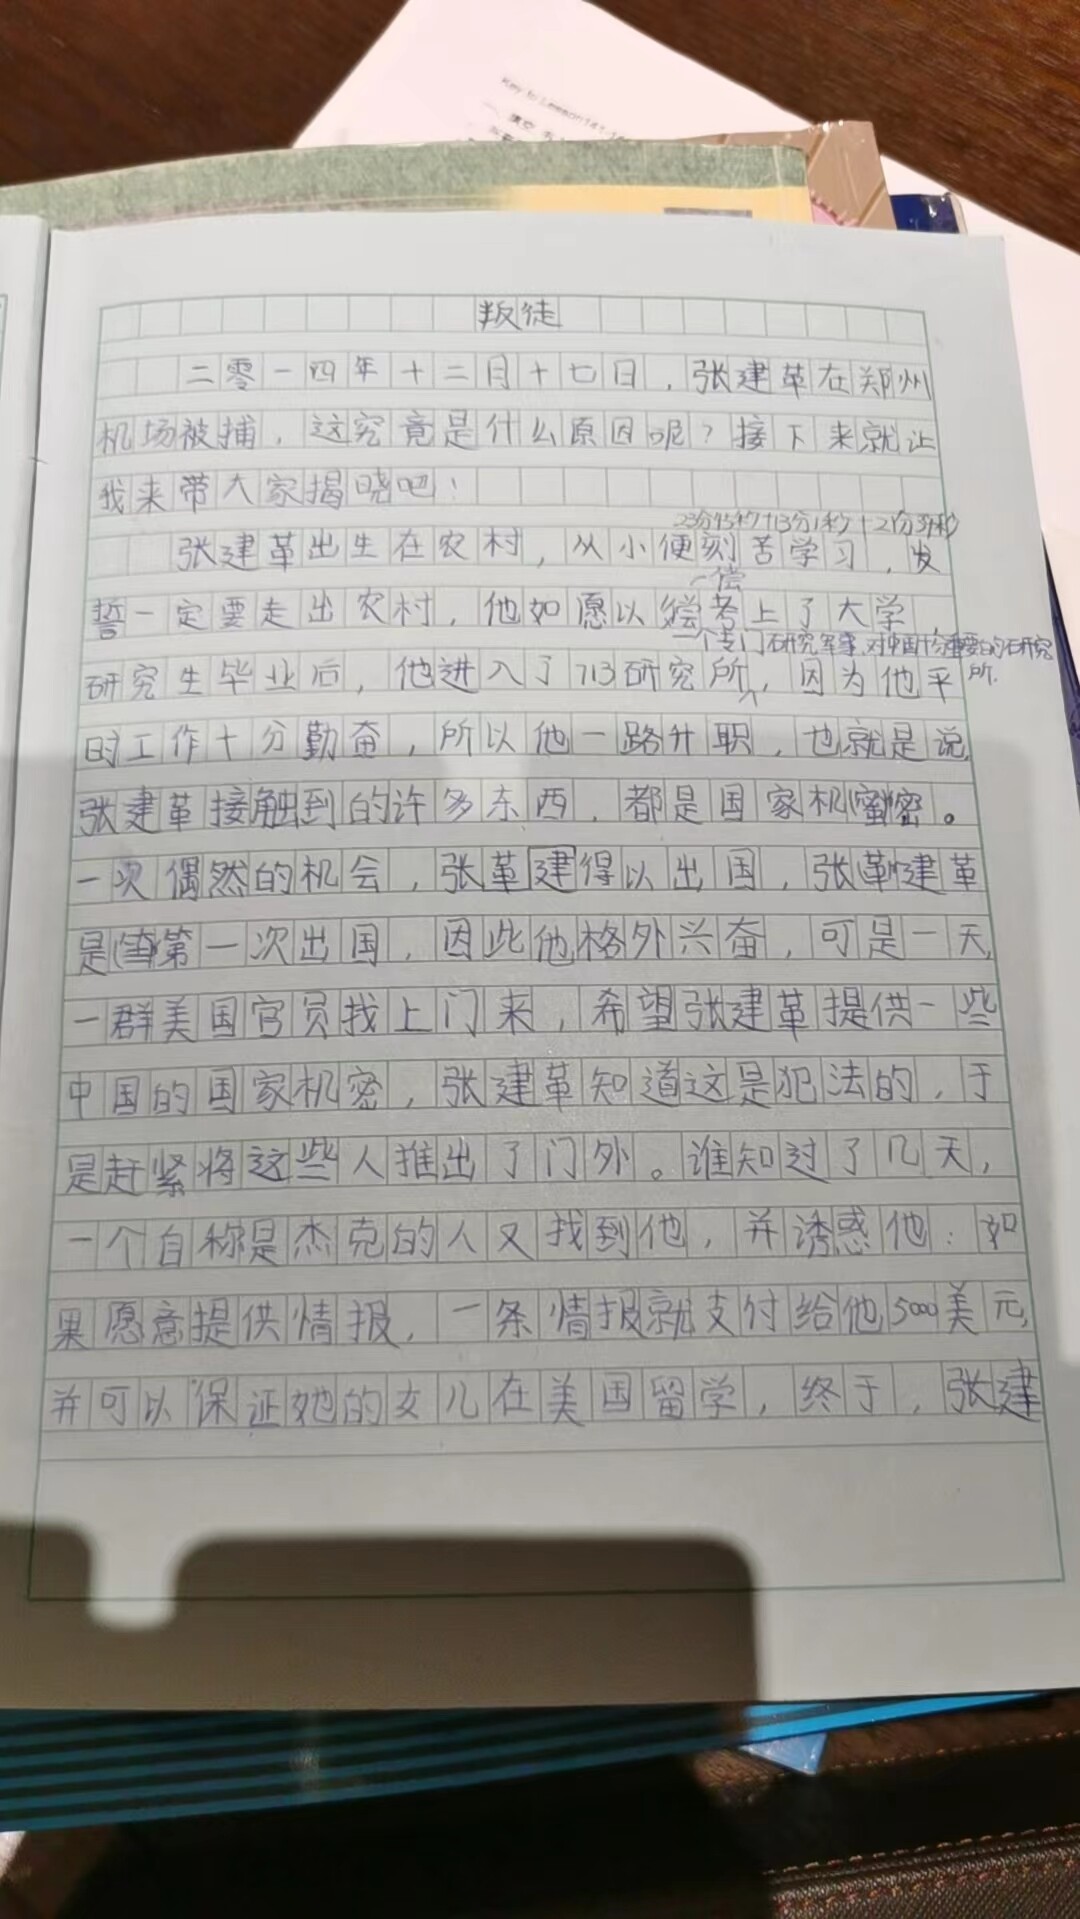 Key to Lesson141-1
一、填空
叛徒
二零一四年十二月十七日，张建革在郑州
机场被捕，这究竟是什么原因呢？接下来就让
我来带大家揭晓吧！
23分45秒+13分1秒+21分39秒
张建革出生在农村，从小便刻苦学习，发
偿
誓一定要走出农村，他如愿以尝考上了大学，
一个专门研究军事，对中国十分重要的研究
所.
研究生毕业后，他进入了713研究所，因为他平
时工作十分勤奋，所以他一路升职，也就是说，
张建革接触到的许多东西，都是国家机密。
一次偶然的机会，张革建得以出国，张建革
是第一次出国，因此他格外兴奋，可是一天，
一群美国官员找上门来，希望张建革提供一些
中国的国家机密，张建革知道这是犯法的，于
是赶紧将这些人推出了门外。谁知过了几天，
一个自称是杰克的人又找到他，并诱惑他：如
果愿意提供情报，一条情报就支付给他5000美元，
并可以保证她的女儿在美国留学，终于，张建